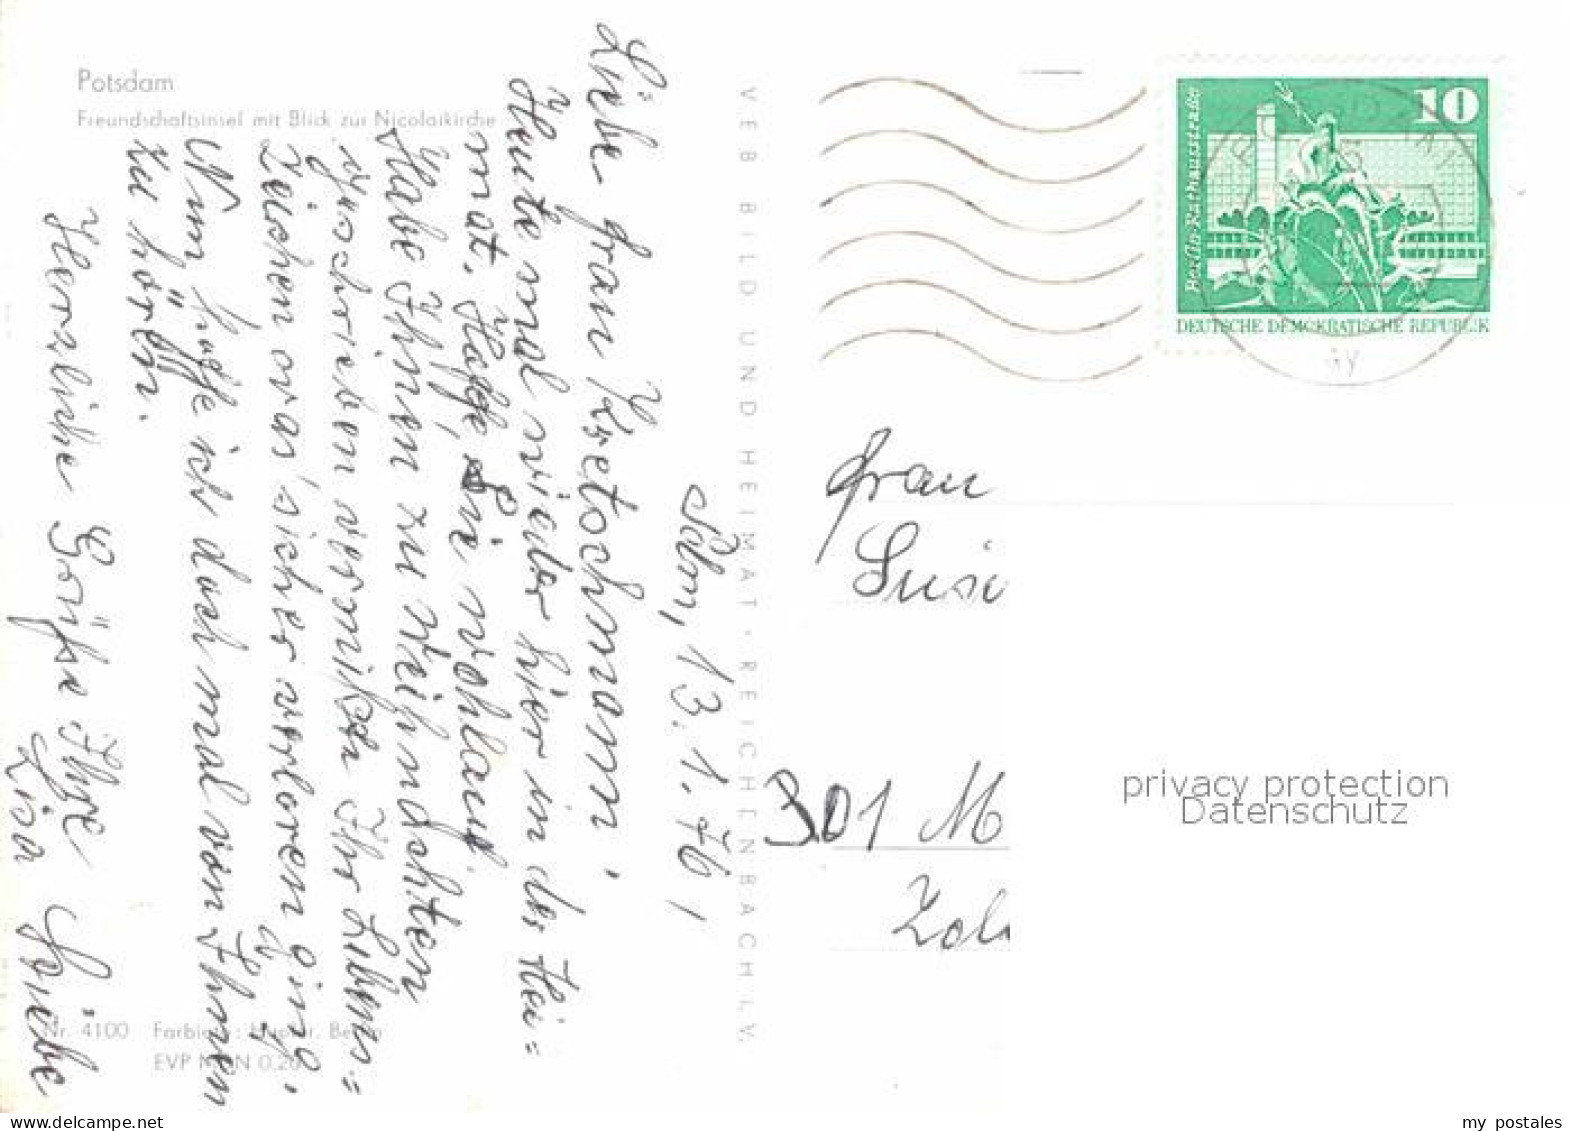 Potsdam
Freundschaftsinsel mit Blick zur Nicolaikirche
Liebe Frau Kretschmann,
Heute mal wieder hier in der Hei=
mat. Hoffe, Sie wohlauf.
Habe Ihnen zu Weihnachten
geschrieben vermisse Ihr Lebens=
zeichen was sicher verloren ging.
Nun hoffe ich doch mal von Ihnen
zu hören.
Herzliche Grüße Ihre
Lisa
13. 1. 76
Nr. 4100 Farbig
EVP
VEB BILD UND HEIMAT · REICHENBACH I. V.
10
Berlin · Rathausstraße
DEUTSCHE DEMOKRATISCHE REPUBLIK
Frau
Susi
301 M
Zol
privacy protection
Datenschutz
my postales